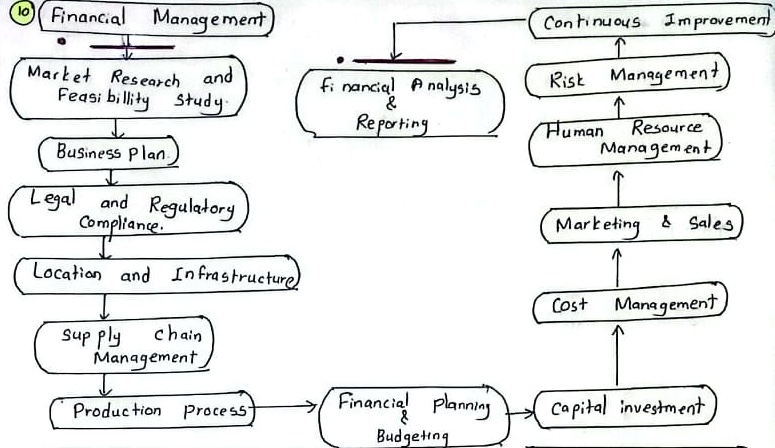 10
Financial Management
Market Research and
Feasibillity Study.
Business Plan.
Legal and Regulatory
Compliance.
Location and Infrastructure
Supply Chain
Management
Production Process
Financial Planning
&
Budgeting
Capital investment
Cost Management
Marketing & Sales
Human Resource
Management
Risk Management
Continuous Improvement
Financial Analysis
&
Reporting